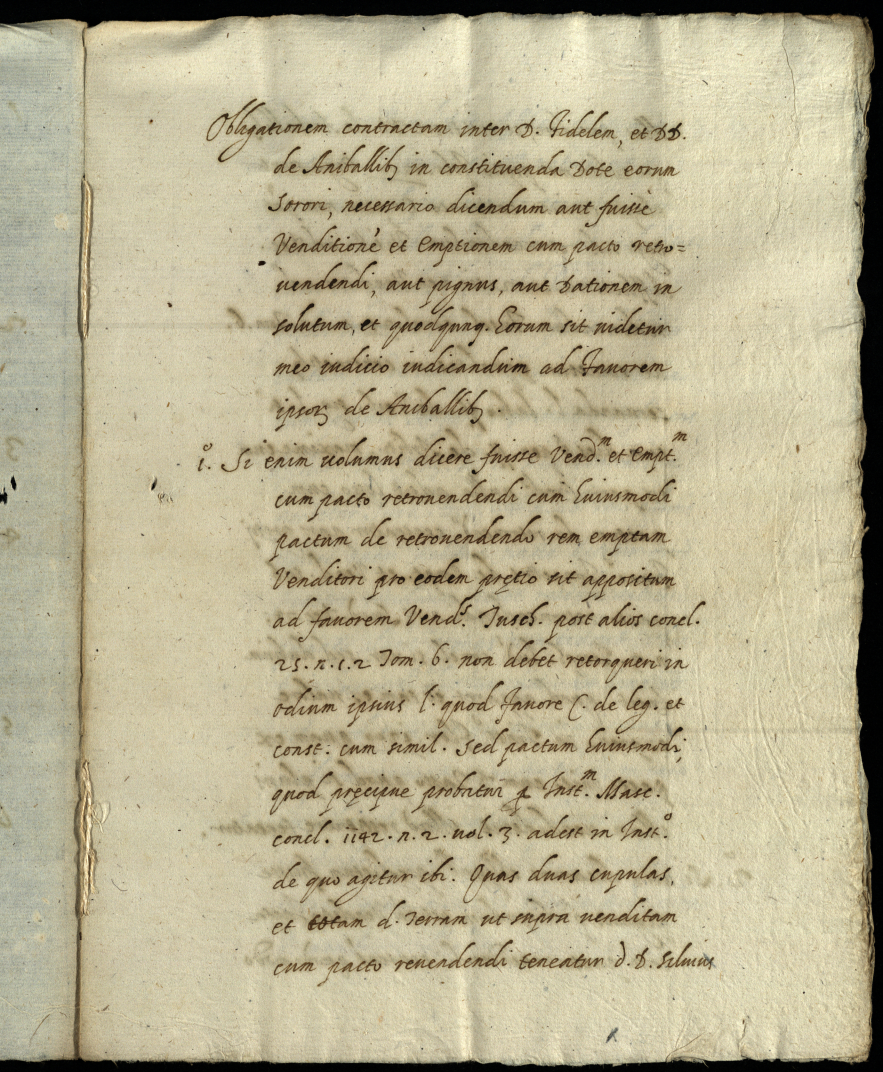 Obligationem contractam inter D. Fidelem, et DD.
de Aniballibꝫ in constituenda Dote eorum
Sorori, necessario dicendum aut fuisse
Venditionē et Emptionem cum pacto retro=
uendendi, aut pignus, aut Dationem in
solutum, et quodqunq. Eorum sit uidetur
meo iudicio iudicandum ad Fauorem
ipsoꝝ de Aniballibꝫ.
1.º Si enim uolumus dicere fuisse Vend.m et Empt.m
cum pacto retrouendendi cum huiusmodi
pactum de retrouendendo rem emptam
Venditori pro eodem pretio sit appositum
ad fauorem Vend.s Tusch. post alios concl.
25. n. 1. 2 Tom. 6. non debet retorqueri in
odium ipsius l. quod Fauore C. de leg. et
const. cum simil. sed pactum huiusmodi,
quod pręcipue probatur ꝑ Inst.m Masc.
concl. 1142. n. 2. uol. 3. adest in Inst.o
de quo agitur ibi. Quas duas cupulas,
et totam d. Terram ut supra uenditam
cum pacto reuendendi teneatur d. D. Siluius